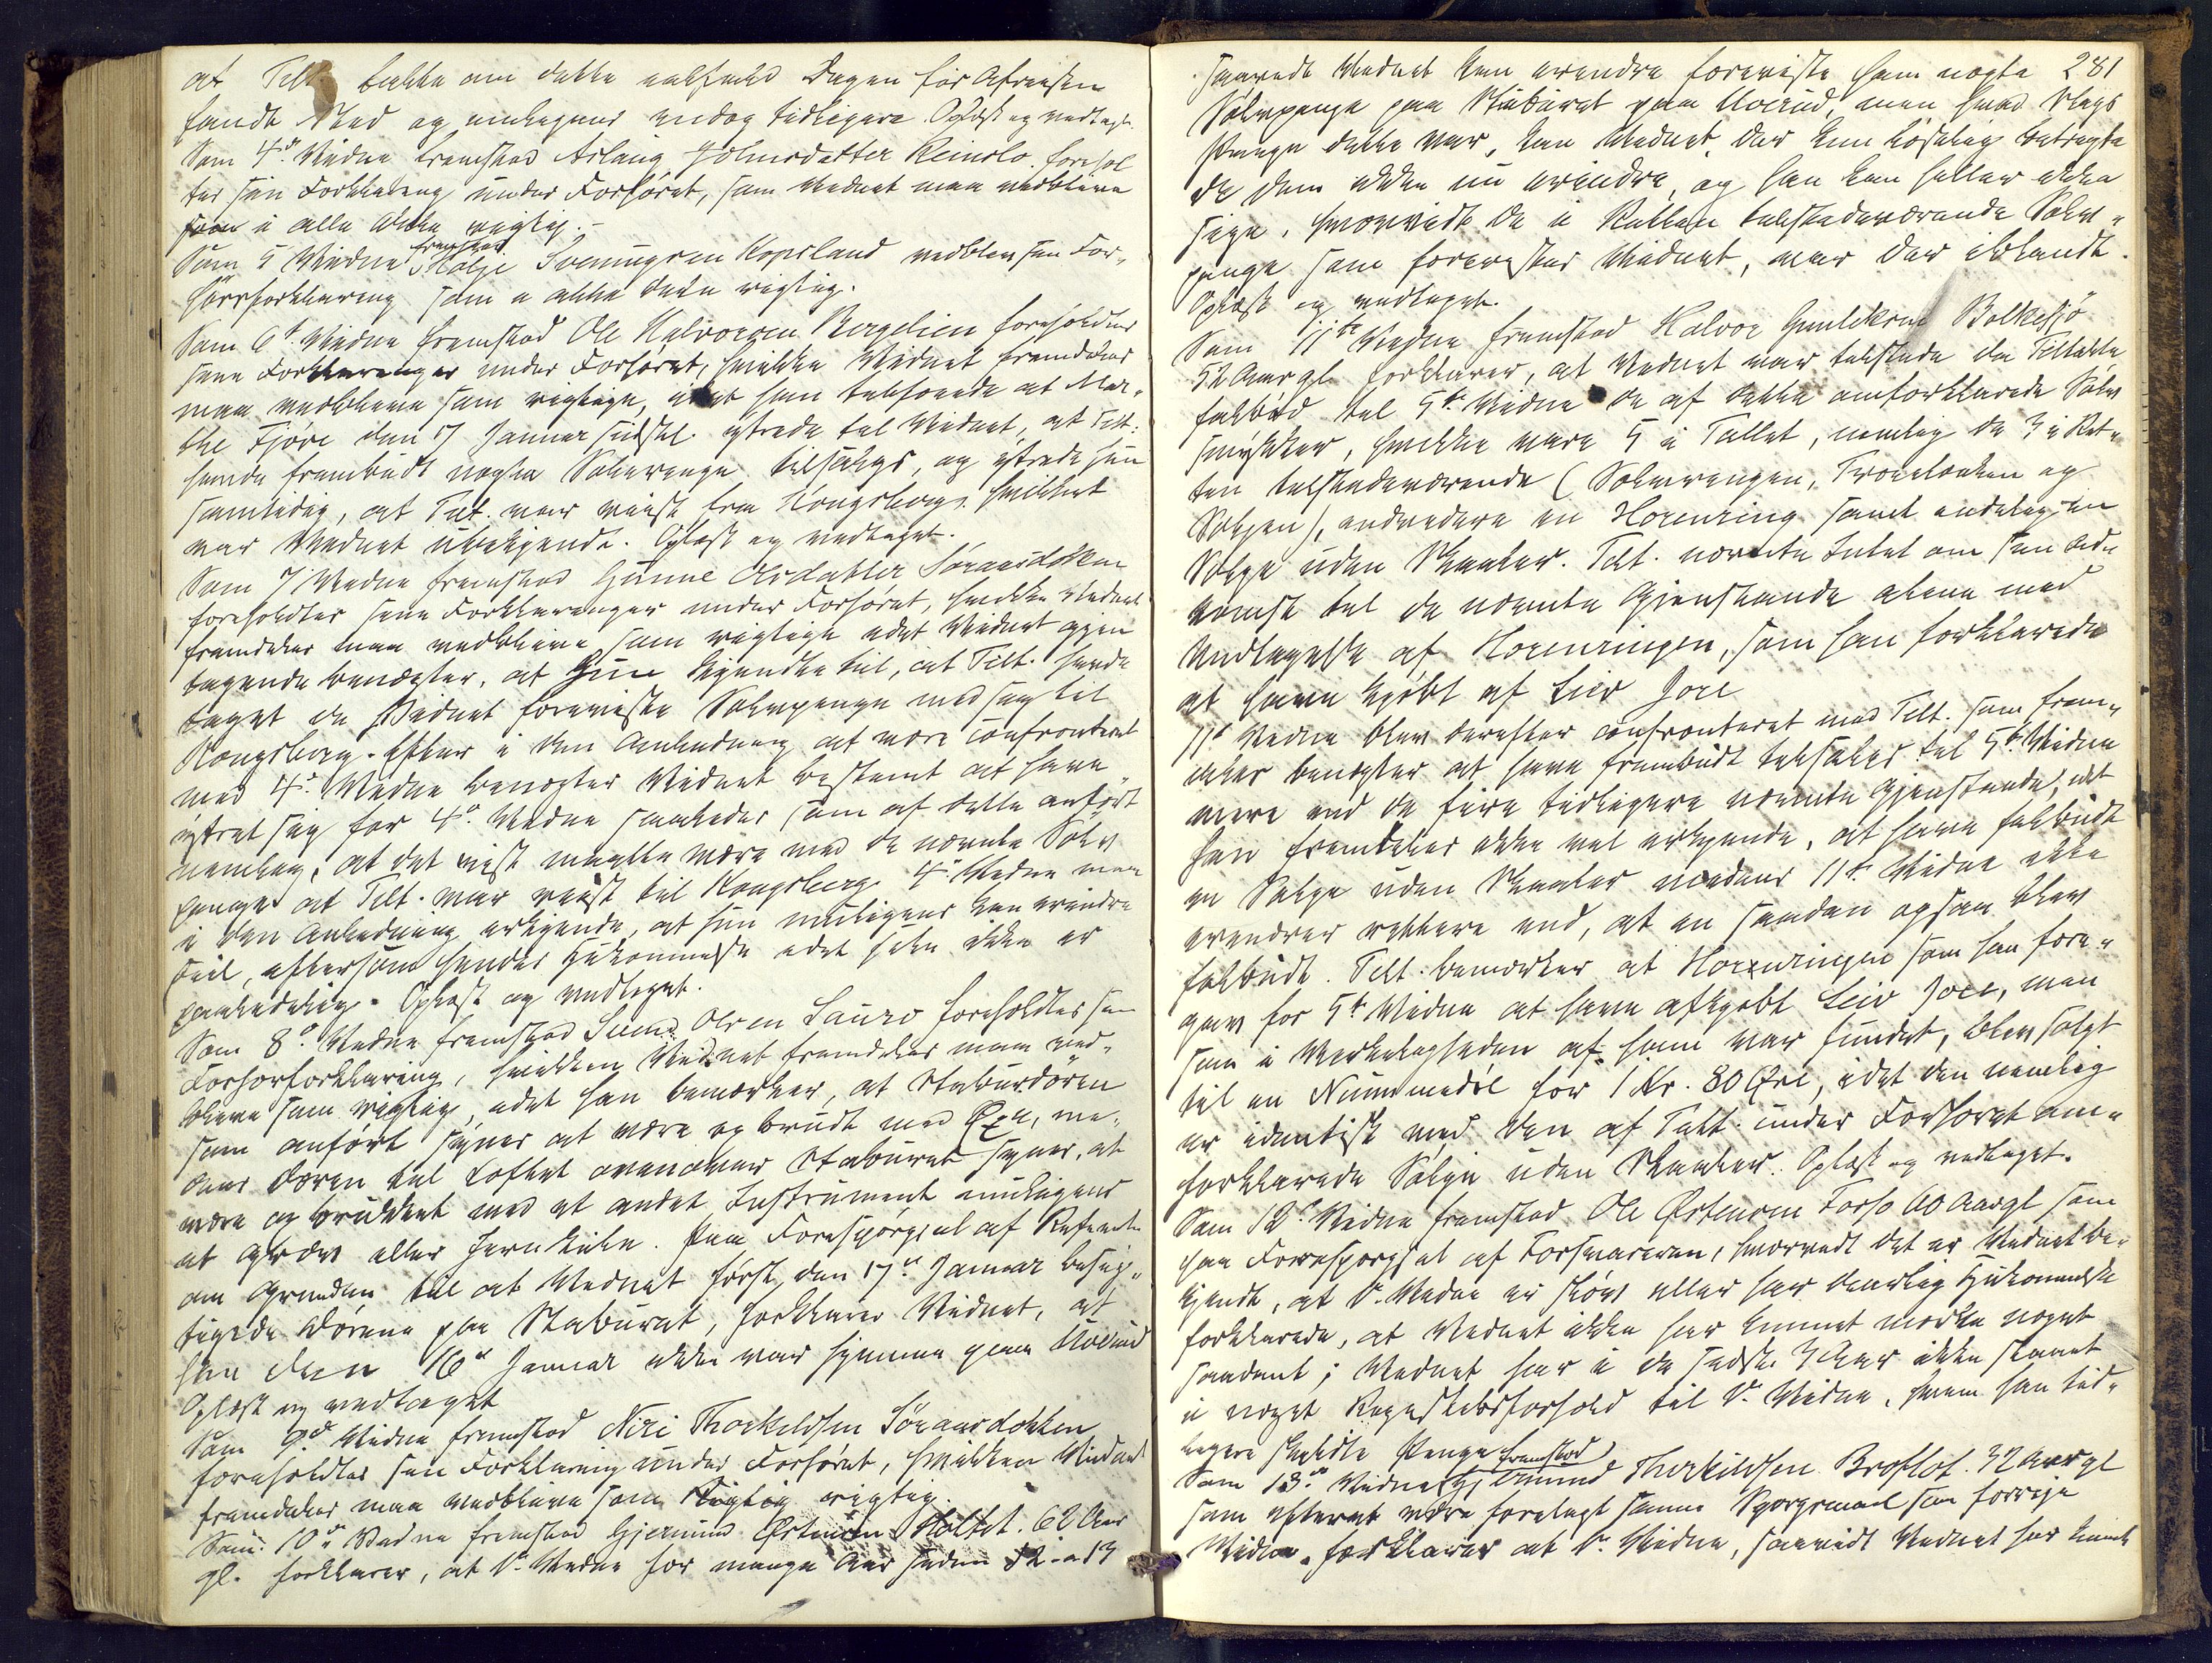 at Tilt. talte om dette ialfald Dagen før Afreisen
fandt Sted og muligens endog tidligere. Oplæst og vedtaget.
Som 4de Vidne fremstod Aslaug Holmsdatter Reinslo. forehol
tes sin Forklaring under Forhøret, som Vidnet maa vedblive
som i alle Dele rigtig.-
Som 5 Vidne fremstod Halje Sveinugsen Kopsland vedblev sin For-
hørsforklaring som i alle Dele rigtig.
Som 6te Vidne fremstod Ole Halvorsen Bergelien foreholdtes
sine Forklaringer under Forhøret, hvilke Vidnet fremdeles
maa vedblive som rigtige, idet han tilføiede at Mar-
the Fjøre den 17 Januar sidstl. ytrede til Vidnet, at Tilt.
havde frembudt nogle Sølvpenge tilsalgs, og ytrede hun
samtidig, at Tilt. var reist fra Kongsberg, hvilket
var Vidnet ubekjendt. Oplæst og vedtaget.
Som 7 Vidne fremstod Gunne Olsdatter Søraasdokken
foreholdtes sine Forklaringer under Forhøret, hvilke Vidnet
fremdeles maa vedblive som rigtige idet Vidnet gjen
tagende benægter, at hun kjendte til, at Tilt. havde
taget de Vidnet foreviste Sølvpenge med sig til
Kongsberg. Efter i den Anledning at være confronteret
med 4de Vidne benægter Vidnet bestemt at have
ytret sig for 4de Vidne saaledes som af dette anført
nemlig, at det vist maatte være med de nævnte Sølv
penge at Tilt. var reist til Kongsberg. 4de Vidne maa
i den Anledning erkjende, at hun muligens kan erindre
feil, eftersom hendes Hukommelse idet hele ikke er
paalidelig. Oplæst og vedtaget.
Som 8de Vidne fremstod Svend Olsen Sauro foreholdtes sin
Forhørsforklaring, hvilken Vidnet fremdeles maa ved-
blive som rigtig, idet han bemærker, at Staburdøren
som anført synes at være op brudt med Øxe, me-
dens Døren til Loftet ovenover Staburet synes, at
være op brukket med et andet Instrument muligens
et Spæt eller Jernkile. Paa Forespørgsel af Referenten
om Grunden til at Vidnet først den 17de Januar besig-
tigede Dørene paa Staburet, forklarer Vidnet, at
han den 16de Januar ikke var hjemme paa Moerud
Oplæst og vedtaget
Som 9de Vidne fremstod Niri Thorkildsen Søraasdokken
foreholdtes sin Forklaring under Forhøret, hvilken Vidnet
fremdeles maa vedblive som rigtig.
Som 10de Vidne fremstod Gjermund Østensen Haltet. 62 Aar
gl. forklarer, at Vidne for mange Aar siden 12 a 13
281
saavidt Vidnet kan erindre foreviste ham nogle
Sølvpenge paa Staburet paa Moerud, men hvad Slags
Penge dette var, kan Vidnet, der kun løselig betragte
de dem ikke nu erindre, og han kan heller ikke
sige, hvorvidt de i Retten tilstedeværende Sølv-
penge som forevistes Vidnet, var der iblandt.
Oplæst og vedtaget.
Som 11te Vidne fremstod Halvor Gunlikson Bolkesjø
52 Aar gl. forklarer, at Vidnet var tilstede da Tiltalte
falbød til 5te Vidne de af dette omforklarede Sølv
smykker, hvilke vare 5 i Tallet, nemlig de 3 i Ret-
ten tilstedeværende (Sølvringen, Troelonken og
Søljen), endvidere en Hornring samt endelig en
Sølje uden Skaaler. Tilt. nævnte Intet om sin Ad-
komst til de nævnte Gjenstande alene med
Undtagelse af Hornringen, som han forklarede
at have kjøbt af Leiv Jore
11te Vidne blev derefter confronteret med Tilt. som frem-
deles benægter at have frembudt tilsalgs til 5te Vidne
mere end de fire tidligere nævnte Gjenstande, idet
han fremdeles ikke vil erkjende, at have falbudt
en Sølje uden Skaaler medens 11te Vidne ikke
erindrer rettere end, at en saadan ogsaa blev
falbudt. Tilt. bemærker at Hornringen som han fore-
gav for 5te Vidne at have afkjøbt Leiv Jore, men
som i Virkeligheden af ham var fundet, blev solgt
til en Nummedøl for 1 Kr. 80 Øre, idet den nemlig
er identisk med den af Tilt. under Forhøret om-
forklarede Sølje uden Skaaler. Oplæst og vedtaget.
Som 12te Vidne fremstod Ole Østensen Forso 60 Aargl. som
paa Forespørgsel af Forsvareren, hvorvidt det er Vidnet be-
kjendt, at Vidne er sløv eller har daarlig Hukommelse
forklarede, at Vidnet ikke har kunnet mærke noget
saadant; Vidnet har i de sidste 3 Aar ikke staaet
i noget Regnskabsforhold til Vidne, hvem han tid-
ligere skyldte Penge
Som 13de Vidne fremstod Gjermund Therkildsen Broslof. 32 Aar gl
som efterat være forelagt samme Spørgsmaal som forrige
Vidne forklarer at Vidne, saavidt Vidnet har kunnet